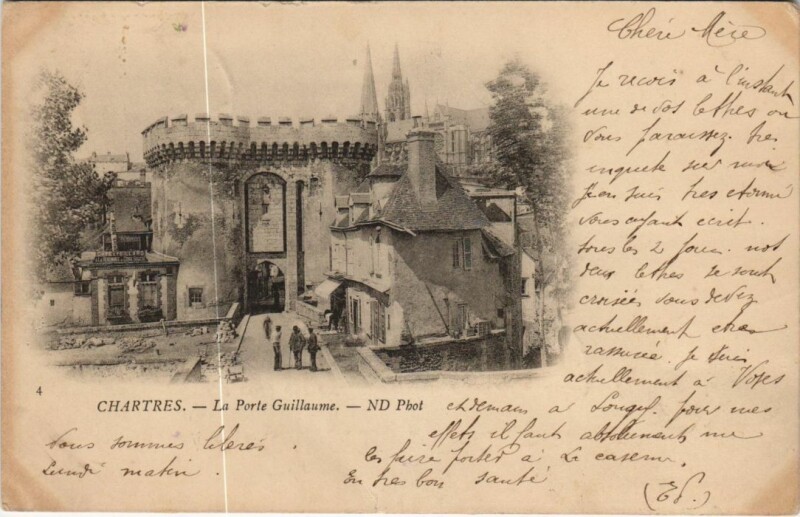 Chére Mère
Je reçois à l'instant
une de vos lettres ou
vous paraissez tres
inquete sur moi
J'en suis tres etonné
vous ayant ecrit
tous les 2 jours. nos
deux lettres se sont
croisées vous devez
actuellement etre
rassurée. Je suis
actuellement à Voves
et demain a Longy. pour mes
effets il faut absolument me
les faire porter à la caserne.
En tres bon santé
(Ed.)
Nous sommes liberés
Lundi matin.
4
CHARTRES. — La Porte Guillaume. — ND Phot